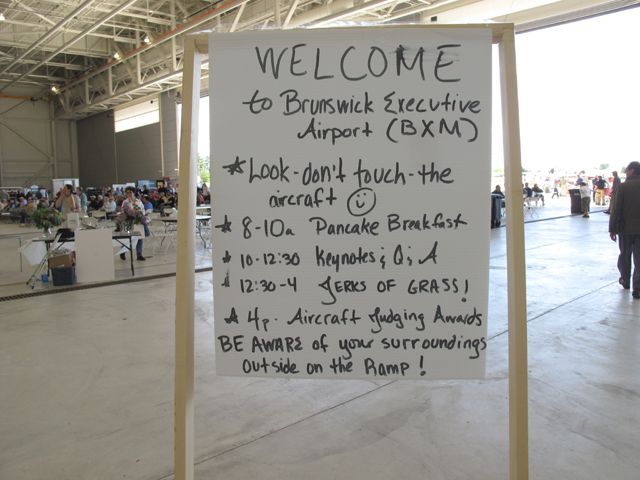 WELCOME
to Brunswick Executive
Airport (BXM)
★ Look-don't touch-the
aircraft ☺
★ 8-10a Pancake Breakfast
★ 10-12:30 Keynotes & Q & A
★ 12:30-4 JERKS OF GRASS!
★ 4p. Aircraft Judging Awards
BE AWARE of your surroundings
outside on the Ramp!